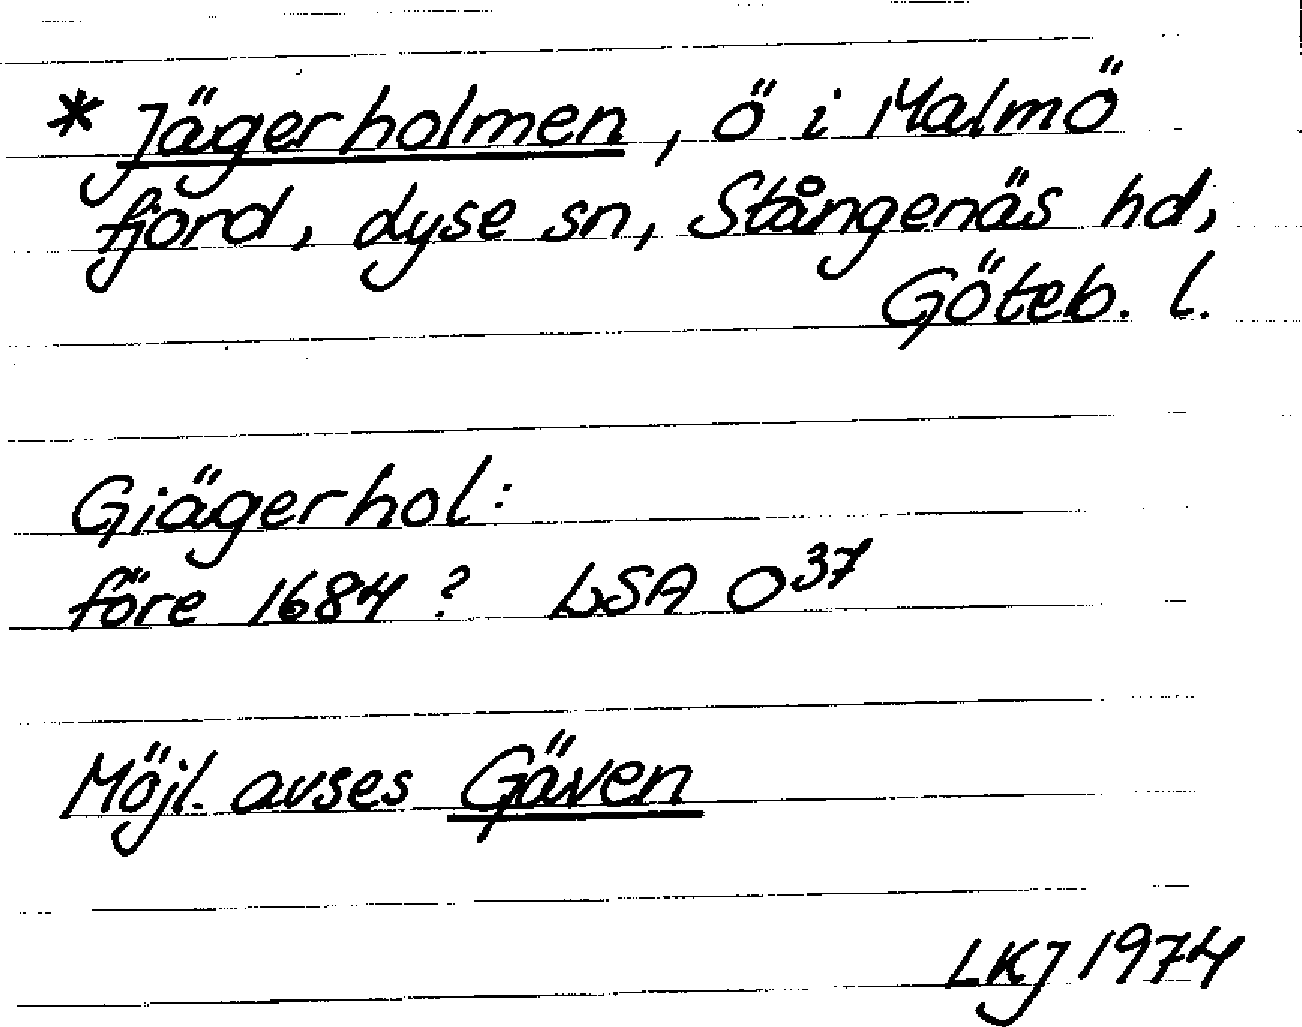 * Jägerholmen, ö i Malmö
fjord, Lyse sn, Stångenäs hd,
Göteb. l.
Giägerhol:
före 1684? LSA O37
Möjl. avses Gäven
LKJ 1974